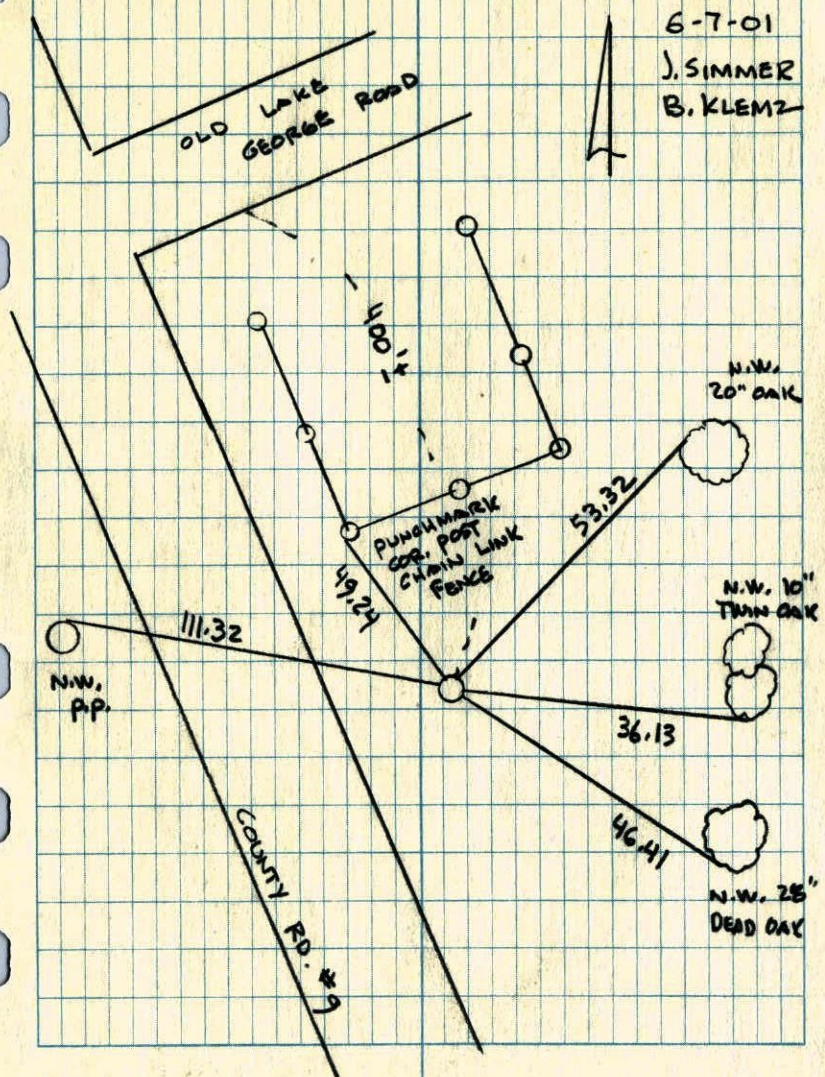 6-7-01
J. SIMMER
B. KLEMZ
OLD LAKE
GEORGE ROAD
400'±
N.W.
20" OAK
53.32
PUNCHMARK
COR. POST
CHAIN LINK
FENCE
49.24
N.W. 10"
TWIN OAK
111.32
N.W.
P.P.
36.13
46.41
COUNTY RD. #9
N.W. 28"
DEAD OAK